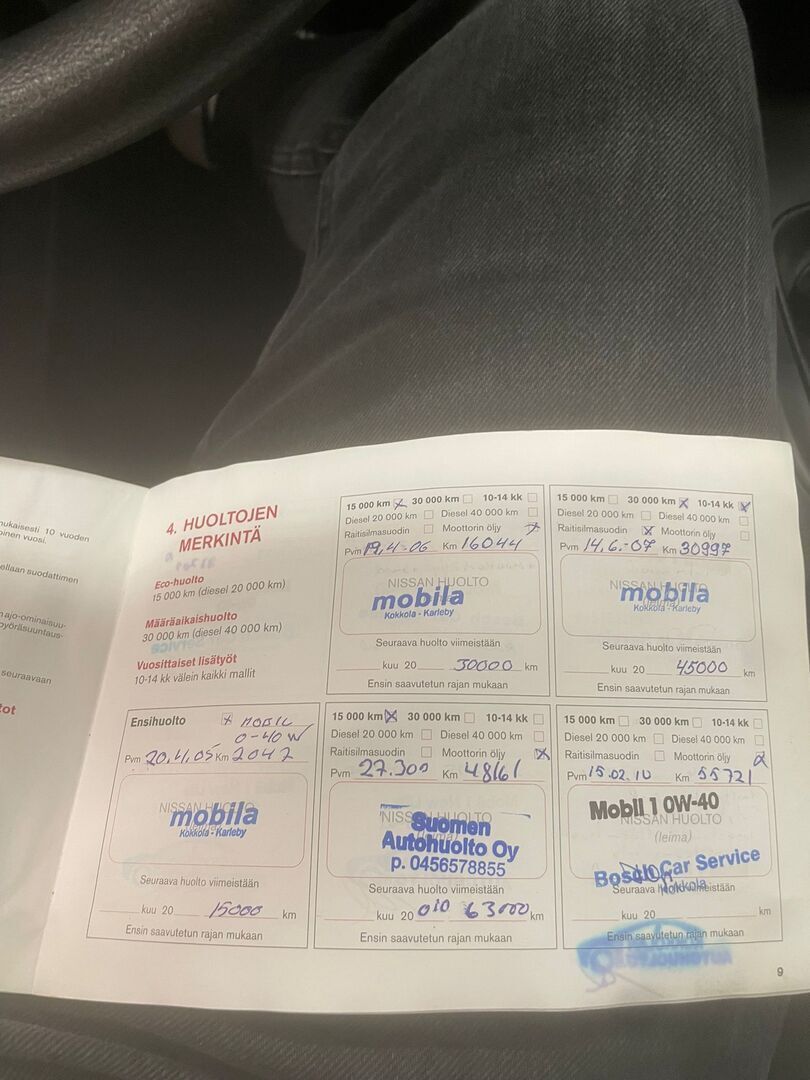 nukaisesti 10 vuoden
oinen vuosi.
ellaan suodattimen
najo-ominaisuu-
pyöräsuuntaus-
seuraavaan
tot
4. HUOLTOJEN
MERKINTÄ
Eco-huolto
15 000 km (diesel 20 000 km)
Määräaikaishuolto
30 000 km (diesel 40 000 km)
Vuosittaiset lisätyöt
10-14 kk välein kaikki mallit
15 000 km 30 000 km 10-14 kk
Diesel 20 000 km Diesel 40 000 km
Raitisilmasuodin Moottorin öljy
Pvm 19,4-06 Km 16044
NISSAN HUOLTO
mobila
Kokkola - Karleby
Seuraava huolto viimeistään
kuu 20 30000 km
Ensin saavutetun rajan mukaan
15 000 km 30 000 km 10-14 kk
Diesel 20 000 km Diesel 40 000 km
Raitisilmasuodin Moottorin öljy
Pvm 14,6.-07 Km 30997
NISSAN HUOLTO
mobila
Kokkola - Karleby
Seuraava huolto viimeistään
kuu 20 45000 km
Ensin saavutetun rajan mukaan
Ensihuolto MOBIL
0-40W
Pvm 20,4,05 Km 2047
NISSAN HUOLTO
mobila
Kokkola - Karleby
Seuraava huolto viimeistään
kuu 20 15000 km
Ensin saavutetun rajan mukaan
15 000 km 30 000 km 10-14 kk
Diesel 20 000 km Diesel 40 000 km
Raitisilmasuodin Moottorin öljy
Pvm 27.300 Km 48161
NISSAN HUOLTO
(leima)
Suomen
Autohuolto Oy
p. 0456578855
Seuraava huolto viimeistään
kuu 20 010 63000 km
Ensin saavutetun rajan mukaan
15 000 km 30 000 km 10-14 kk
Diesel 20 000 km Diesel 40 000 km
Raitisilmasuodin Moottorin öljy
Pvm 15.02.10 Km 55721
Mobil 1 0W-40
NISSAN HUOLTO
(leima)
Bosch Car Service
Kokkola
Seuraava huolto viimeistään
kuu 20 km
Ensin saavutetun rajan mukaan
9